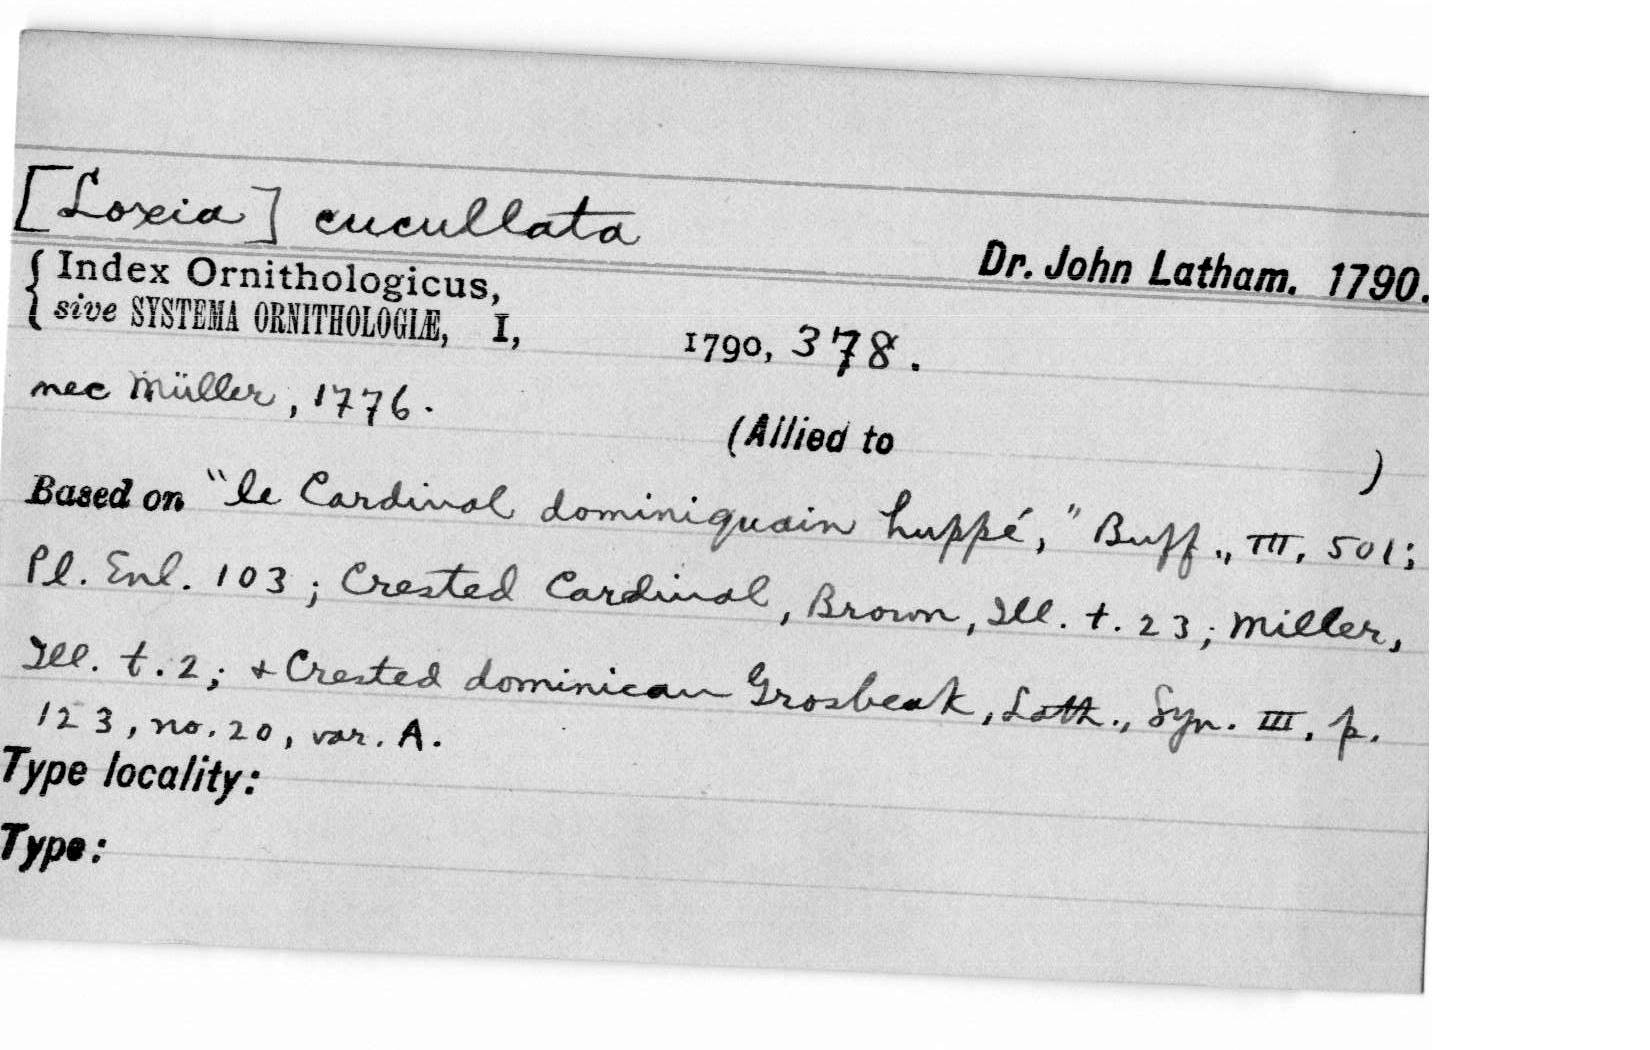 [Loxia] cucullata
Dr. John Latham. 1790.
{ Index Ornithologicus,
sive SYSTEMA ORNITHOLOGIÆ, I, 1790, 378.
nec Müller, 1776.
(Allied to )
Based on "le Cardinal dominiquain huppé," Buff., III, 501;
Pl. Enl. 103; Crested Cardinal, Brown, Ill. t. 23; Miller,
Ill. t. 2; + Crested dominican Grosbeak, Lath., Syn. III, p.
123, no. 20, var. A.
Type locality:
Type: